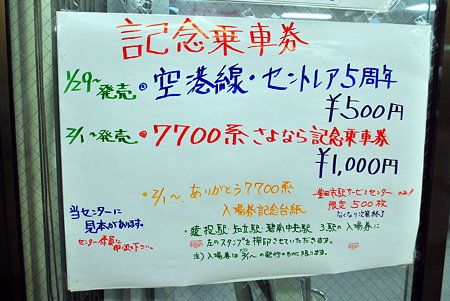 記念乗車券
1/29~発売 ◎ 空港線・セントレア5周年
¥500円
2/1~発売 ● 7700系 さよなら記念乗車券
¥1,000円
・2/1~、ありがとう7700系
入場券記念台紙
豊田市駅サービスセンターのみ!!
限定 500枚
なくなり次第終了
当センターに
見本があります。
センター係員に
・猿投駅 知立駅 碧南中央駅 3駅の入場券に
左のスタンプを押印させていただきます。
注)入場券は2/1~の発行のものに限ります。